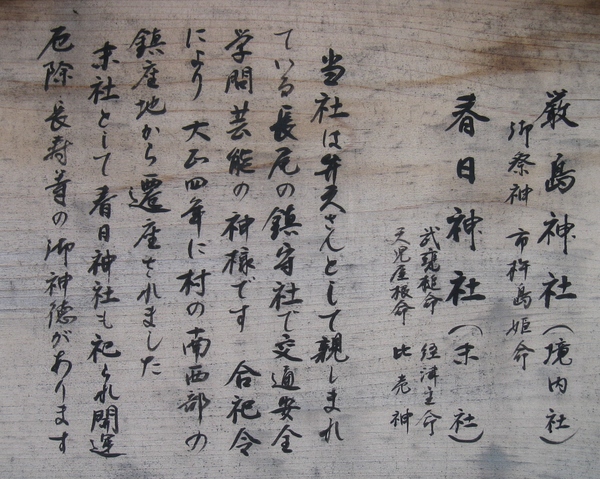 厳島神社(境内社)
御祭神 市杵島姫命
春日神社(末社)
武甕槌命 経津主命
天児屋根命 比売神
当社は弁天さんとして親しまれ
ている長尾の鎮守社で交通安全
学問芸能の神様です 合祀令
により 大正四年に村の南西部の
鎮座地から遷座されました
末社として春日神社も祀られ開運
厄除長寿等の御神徳があります